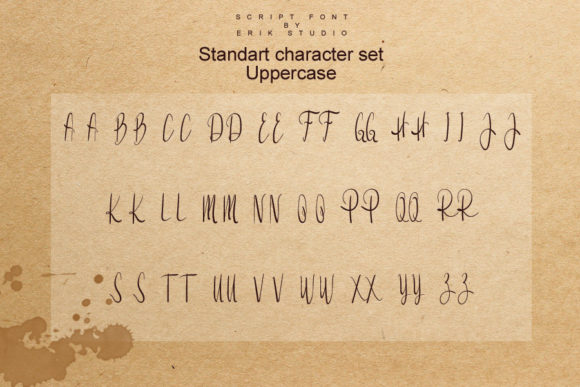 SCRIPT FONT
BY
ERIK STUDIO
Standart character set
Uppercase
A A B B C C D D E E F F G G H H I I J J
K K L L M M N N O O P P Q Q R R
S S T T U U V V W W X X Y Y Z Z